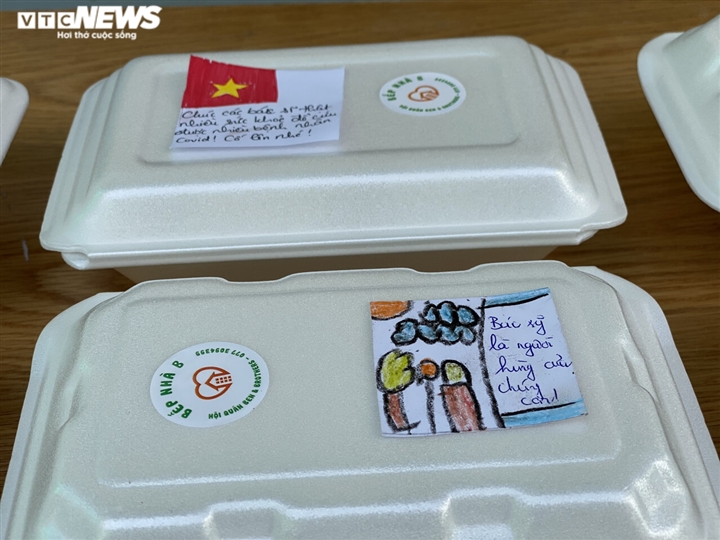 VTC NEWS
Hơi thở cuộc sống
Chúc các bác sĩ thật
nhiều sức khoẻ để cứu
được nhiều bệnh nhân
Covid! Cố lên nhé!
BẾP NHÀ 8
HỘI QUÁN BEN & BROTHERS
BẾP NHÀ 8
HỘI QUÁN BEN & BROTHERS - 077 3094355
Bác sỹ
là người
hùng của
chúng
con!